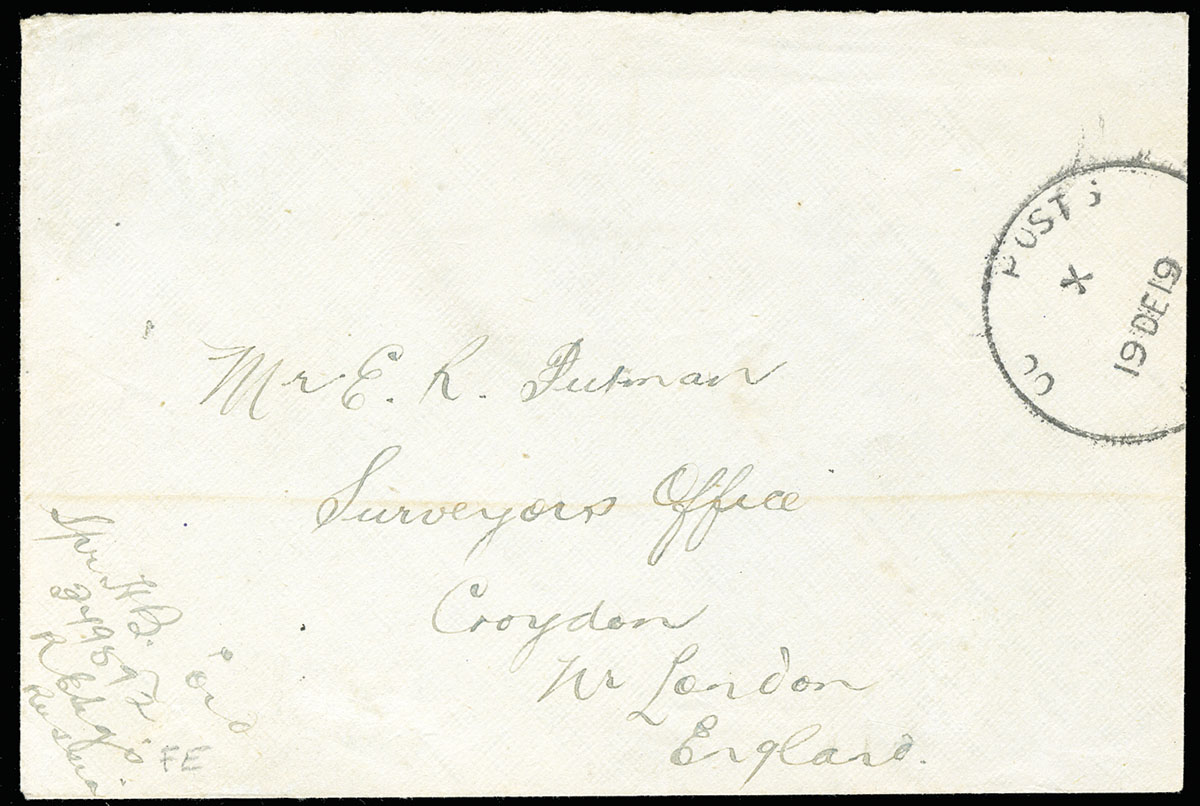 POST
X
19 DE 19
Mr E. R. Putman
Surveyors Office
Croydon
Nr London
England.
Spr. H B.
R Eng's
Russia.
FE